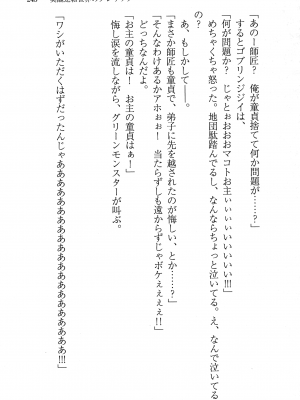 「あのー師匠？　俺が童貞捨てて何か問題が……？」
するとゴブリンジジイは、
「何が問題か？　じゃとぉおおおマコトお主ぃいぃぃいいいい!!!」
めちゃくちゃ怒った。地団駄踏んでるし、なんならちょっと泣いてる。え、なんで泣いてる
の？
あ、もしかして――。
「まさか師匠も童貞で、弟子に先を越されたのが悔しい、とか……？」
「そんなわけあるかアホぉぉ！　当たらずしも遠からずじゃボケぇぇぇぇ!!」
どっちなんだよ。
「お主の童貞は！　お主の童貞はぁ！」
悔し涙を流しながら、グリーンモンスターが叫ぶ。
「ワシがいただくはずだったんじゃあああああああああああああああああああ!!!」